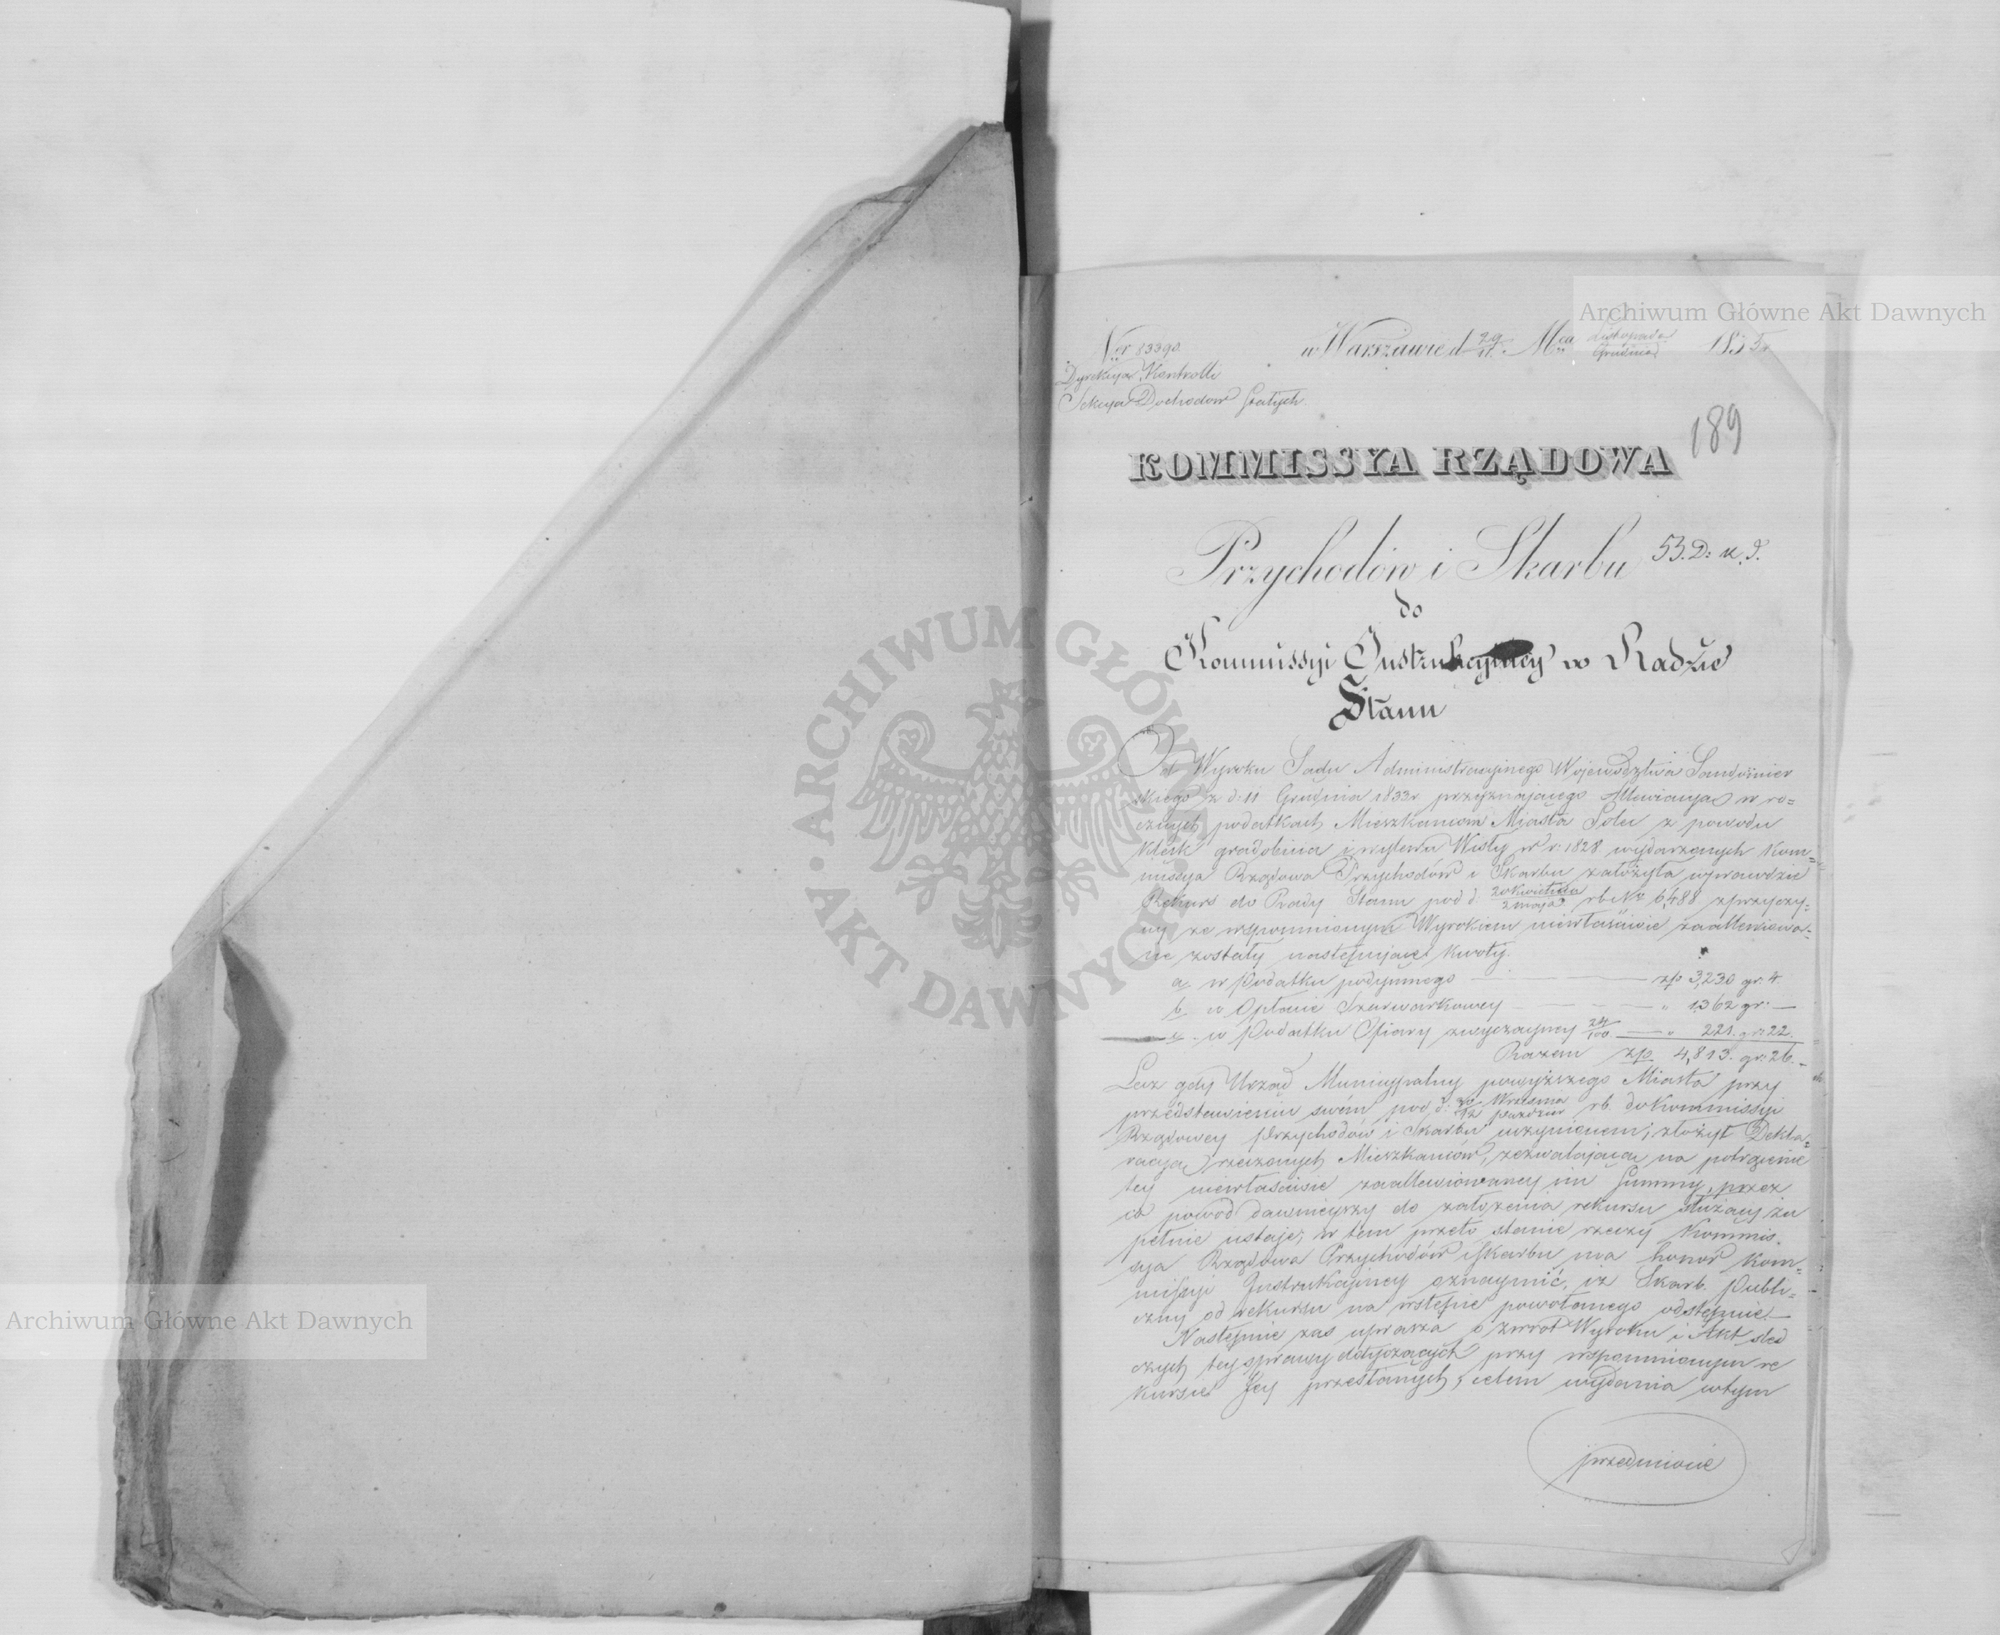 Archiwum Główne Akt Dawnych
Ner 83390
w Warszawie d 29/11 Mca Listopada/Grudnia 1835r
Dyrekcya Kontrolli
Sekcya Dochodow Stałych
189
KOMMISSYA RZĄDOWA
Przychodów i Skarbu
53. D: u. S.
do
Kommissyi Instrukcyiney w Radzie
Stanu
Od Wyroku Sadu Administracyinego Wojewodztwa Sandomier
skiego z d: 11 Grudnia 1833 r przyznaiącego Allewiacyą w ro=
cznych podatkach Mieszkancom Miasta Solca z powodu
klęsk gradobicia i wylewu Wisły w r: 1828 wydarzonych Kom=
missya Rządowa Przychodów i Skarbu założyła wprawdzie
Rekurs do Rady Stanu pod d: 20 Kwietnia/2 Maja rb: No 6,488 z przyczy=
ny że wspomnionym Wyrokiem niewłaściwie zaallewiowa=
ne zostały następujące kwoty.
a. w Podatku podymnego zp 3,230 gr: 4.
b. w Opłacie Szarwarkowey " 1362 gr: —
c. w Podatku Ofiary zwyczayney 24/100 " 221. gr: 22.
Razem zp. 4,813. gr: 26.
Lecz gdy Urząd Municypalny powyższego Miasta przy
przedstawieniu swém pod d: 30 Wrzesnia/12 Pazdzier rb. do Kommissyi
Rządowey Przychodów i Skarbu uczynionem, złożył Dekla=
racyą rzeczonych Mieszkańców, zezwalaiącą na potrącenie
tey niewłaściwie zaallewiowaney im Summy, przez
co powód dawnieyszy do założenia rekursu służący zu
pełnie ustaje, w tem przeto stanie rzeczy Kommis=
sya Rządowa Przychodów i Skarbu ma honor Kom=
missyi Instrukcyiney oznaymić, iż Skarb Publi=
czny od rekursu na wstępie powołanego odstępuie.—
Następnie zas uprasza o zwrot Wyroku i Akt sled
czych tey sprawy dotyczących przy wspomnionym re
kursie Jey przesłanych, celem wydania w tym
przedmiocie
ARCHIWUM GŁÓWNE AKT DAWNYCH
Archiwum Główne Akt Dawnych